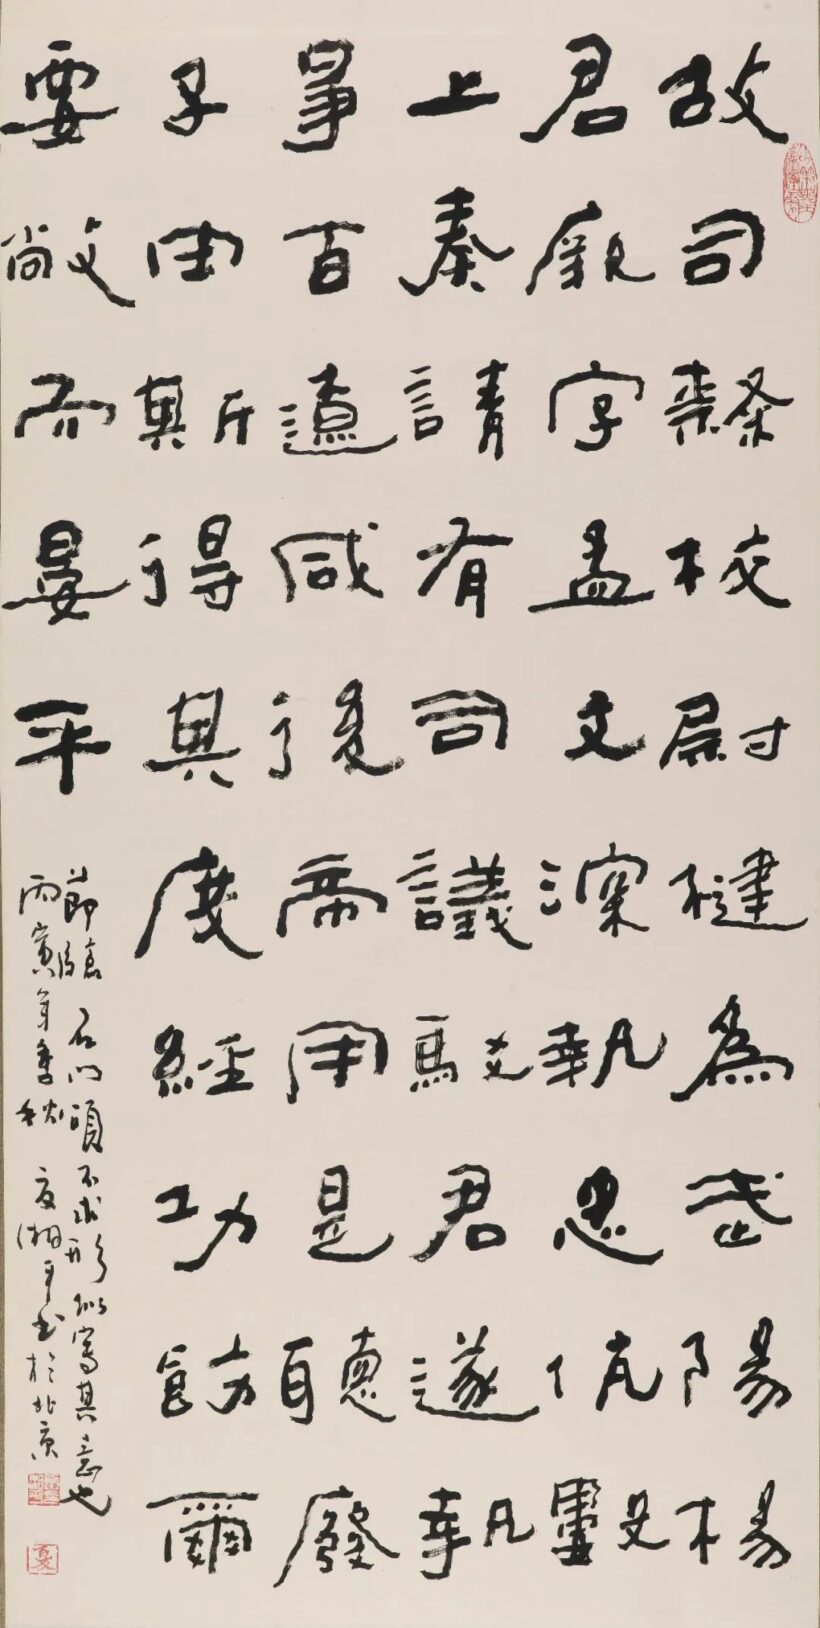 故司隸校尉楗為武陽楊
君厥字孟文深執忠伉數
上奏請有司議駁君遂執
爭百遼咸從帝用是聽廢
子由斯得其度經功飭爾
要敞而晏平
節臨石門頌不求形似寫其意也
丙寅年季秋夏湘平書於北京